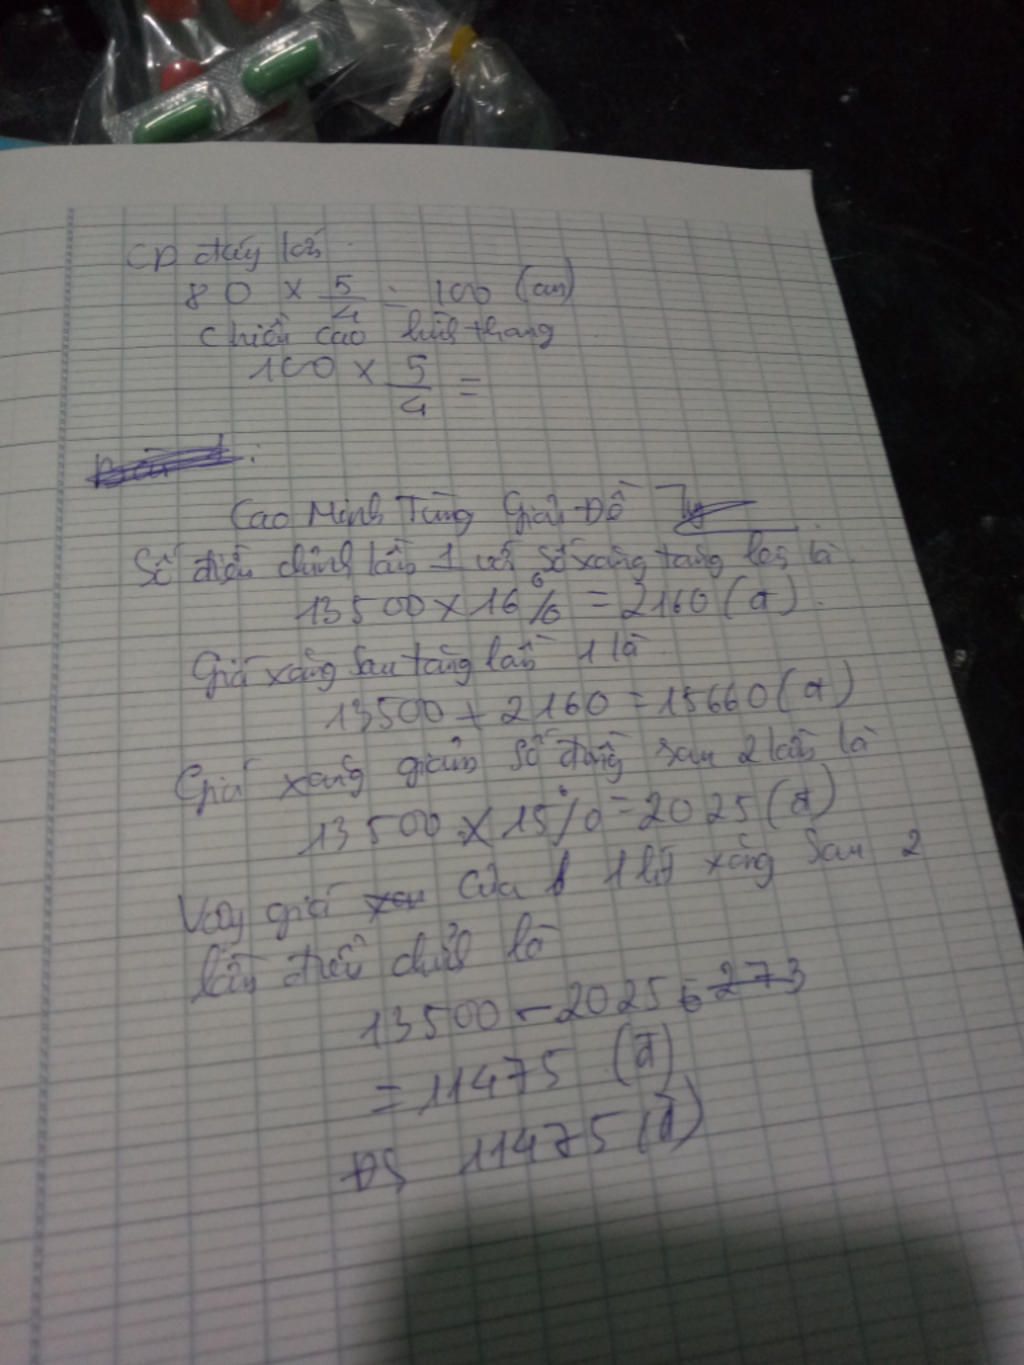 CD đáy lớn
80 × 5/4 = 100 (cm)
Chiều cao hình thang
100 × 5/4 =
Cao Minh Tùng Giải Đố
Số điều chỉnh lần 1 với số xăng tăng lên là
13500 × 16% = 2160 (đ)
Giá xăng sau tăng lần 1 là
13500 + 2160 = 15660 (đ)
Giá xăng giảm số đồng sau 2 lần là
13500 × 15% = 2025 (đ)
Vậy giá của 1 lít xăng sau 2
lần điều chỉnh là
13500 - 2025
= 11475 (đ)
ĐS 11475 (đ)